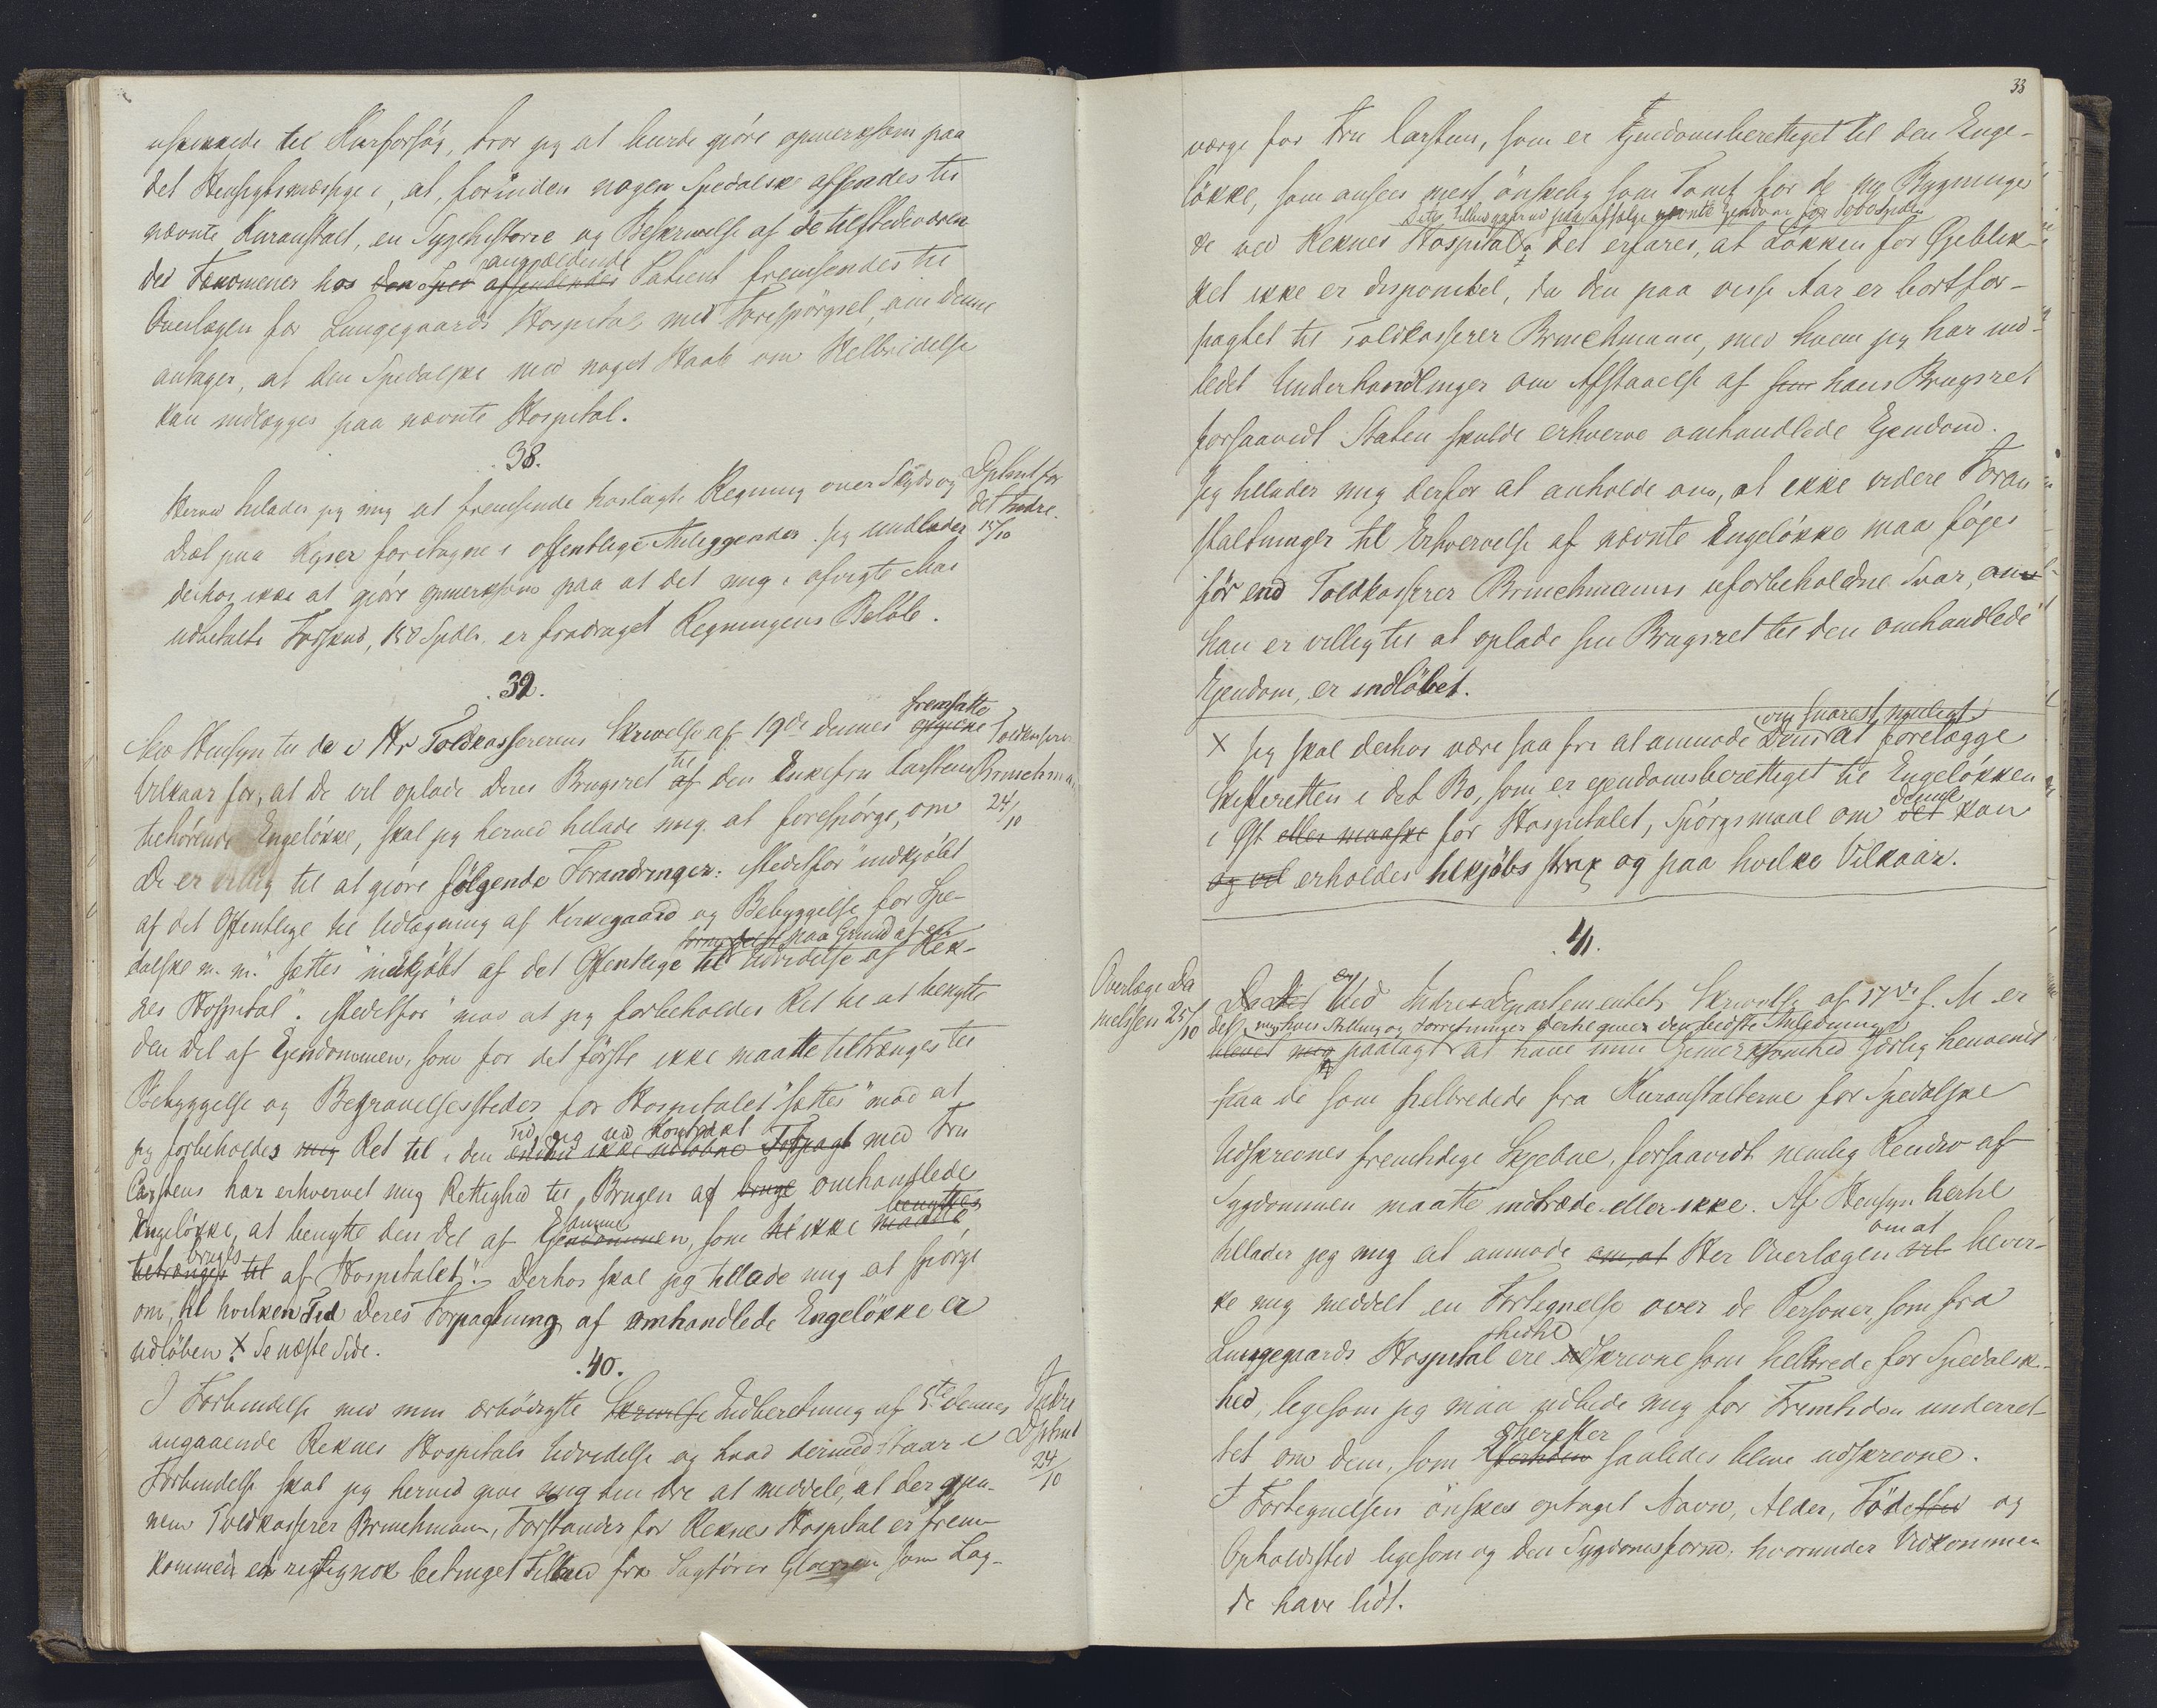 uskikkede til Kurforsög, tror jeg at burde gjöre opmerksom paa
det Hensigtsmæssige i, at, forinden nogen Spedalsk afsendes til
nævnte Kuranstalt, en Sygehistorie og Beskrivelse af de tilstedeværen
angjældende
de Fænomener hos den Sped afsendendes Patient fremsendes til
Overlægen for Lungegaards Hospital, med Forespörgsel, om denne
antager, at den Spedalske med noget Haab om Helbredelse
kan indlægges paa nævnte Hospital.
.38.
Herved tillader jeg mig at fremsende hoslagte Regning over Skyds og
Diæt paa Rejser foretagne i offentlige Anliggender. Jeg undlader
derhos ikke at gjöre opmerksom paa at det mig i afvigte Mai
udbetalte Forskud, 150 Spdlr. er fradraget Regningens Belöb.
Dptmt for
det Indre.
15/10
.39.
fremsatte
Med Hensyn til de i Hr Toldkassererens Skrivelse af 19de dennes opgivne
Vilkaar for, at De vil oplade Deres Brugsret til af den Enkefru Carstens
tilhörende Engelökke, skal jeg herved tillade mig at forespörge, om
De er villig til at gjöre fölgende Forandringer: istedetfor "indkjöbt
af det Offentlige til Udlægning af Kirkegaard og Bebyggelse for Spe-
paa Grund af en
dalske m. m." sættes "indkjöbt af det Offentlige til Udvidelse af Rek-
nes Hospital". Istedetfor "mod at jeg forbeholdes Ret til at benytte
den Del af Ejendommen, som for det förste ikke maatte tiltrænges til
Bebyggelse og Begravelsessteder for Hospitalet" sættes "mod at
Tid jeg ved Kontrakt
jeg forbeholdes mig Ret til i den endnu ikke udløbne Forpagt med Fru
Carstens har erhvervet mig Rettighed til Brugen af bruge omhandlede
samme benyttes
Engelökke, at benytte den Del af Ejendommen, som til ikke maatte
bruges
tiltrænges til af Hospitalet". Derhos skal jeg tillade mig at spörge
om, til hvilken Tid Deres Forpagtning af omhandlede Engelökke er
udlöben. X Se næste Side.
Toldkasserer
Brinchmann
24/10
.40.
I Forbindelse med min ærbödigste Skrivelse Indberetning af 5te dennes
angaaende Reknes Hospitals Udvidelse og hvad dermed staar i
Forbindelse skal jeg herved give mig den Ære at meddele, at der gjen-
nem Toldkasserer Brinchmann, Forstander for Reknes Hospital er frem-
kommen et rigtignok betinget Tilbud fra Sagförer Gloersen som Lag-
Indre
Dptmt
24/10
33
værge for Fru Carstens, som er Ejendomsberettiget til den Enge-
lökke, som ansees mest önskelig som Tomt for de nye Bygninger
Dette Tilbud gaar ud paa at sælge nævnte Ejendom for 1000 Spdlr
de ved Reknes Hospital. Det erfares, at Lökken for Øjeblik-
ket ikke er disponibel, da den paa visse Aar er bortfor-
pagtet til Toldkasserer Brinchmann, med hvem jeg har ind-
ledet Underhandlinger om Afstaaelse af sin hans Brugsret
forsaavidt Staten skulde erhverve omhandlede Ejendom.
Jeg tillader mig derfor at anholde om, at ikke videre Foran
staltninger til Erhvervelse af nævnte Engelökke maa föjes
för end Toldkasserer Brinchmanns uforbeholdne Svar, om
han er villig til at oplade sin Brugsret til den omhandlede
Ejendom, er indlöbet.
om snarest muligt
X Jeg skal derhos være saa fri at anmode Dem at forelægge
Skifteretten i det Bo, som er ejendomsberettiget til Engelökken
denne
i Øst eller maaske for Hospitalet, Spörgsmaal om det kan
og vel erholdes tilkjöbs strax og paa hvilke Vilkaar.
.41.
Overlæge Da
nielssen 25/10
Da det er Ved Indre-Departementets Skrivelse af 17de f. M. er
det mig hvis Stilling og Forretninger dertil giver den bedste Anledning
blevet mig paalagt at have min Opmerksomhed særlig henvendt
paa de som helbredede fra Kuranstalterne for Spedalske
Udskrevnes fremtidige Skjebne, forsaavidt nemlig Recidiv af
Sygdommen maatte indtræde eller ikke. Af Hensyn hertil
om at
tillader jeg mig at anmode om, at Her Overlægen vil bevir-
ke mig meddelt en Fortegnelse over de Personer, som fra
hidtil
Lungegaards Hospital ere udskrevne som helbrede for Spedalsk-
hed, ligesom jeg maa udbede mig for Fremtiden underret-
herefter
tet om dem, som efterhden saaledes blive udskrevne.
I Fortegnelsen önskes optaget Navn, Alder, Födested og
Opholdssted ligesom og den Sygdomsform, hvorunder Vedkommen
de have lidt.